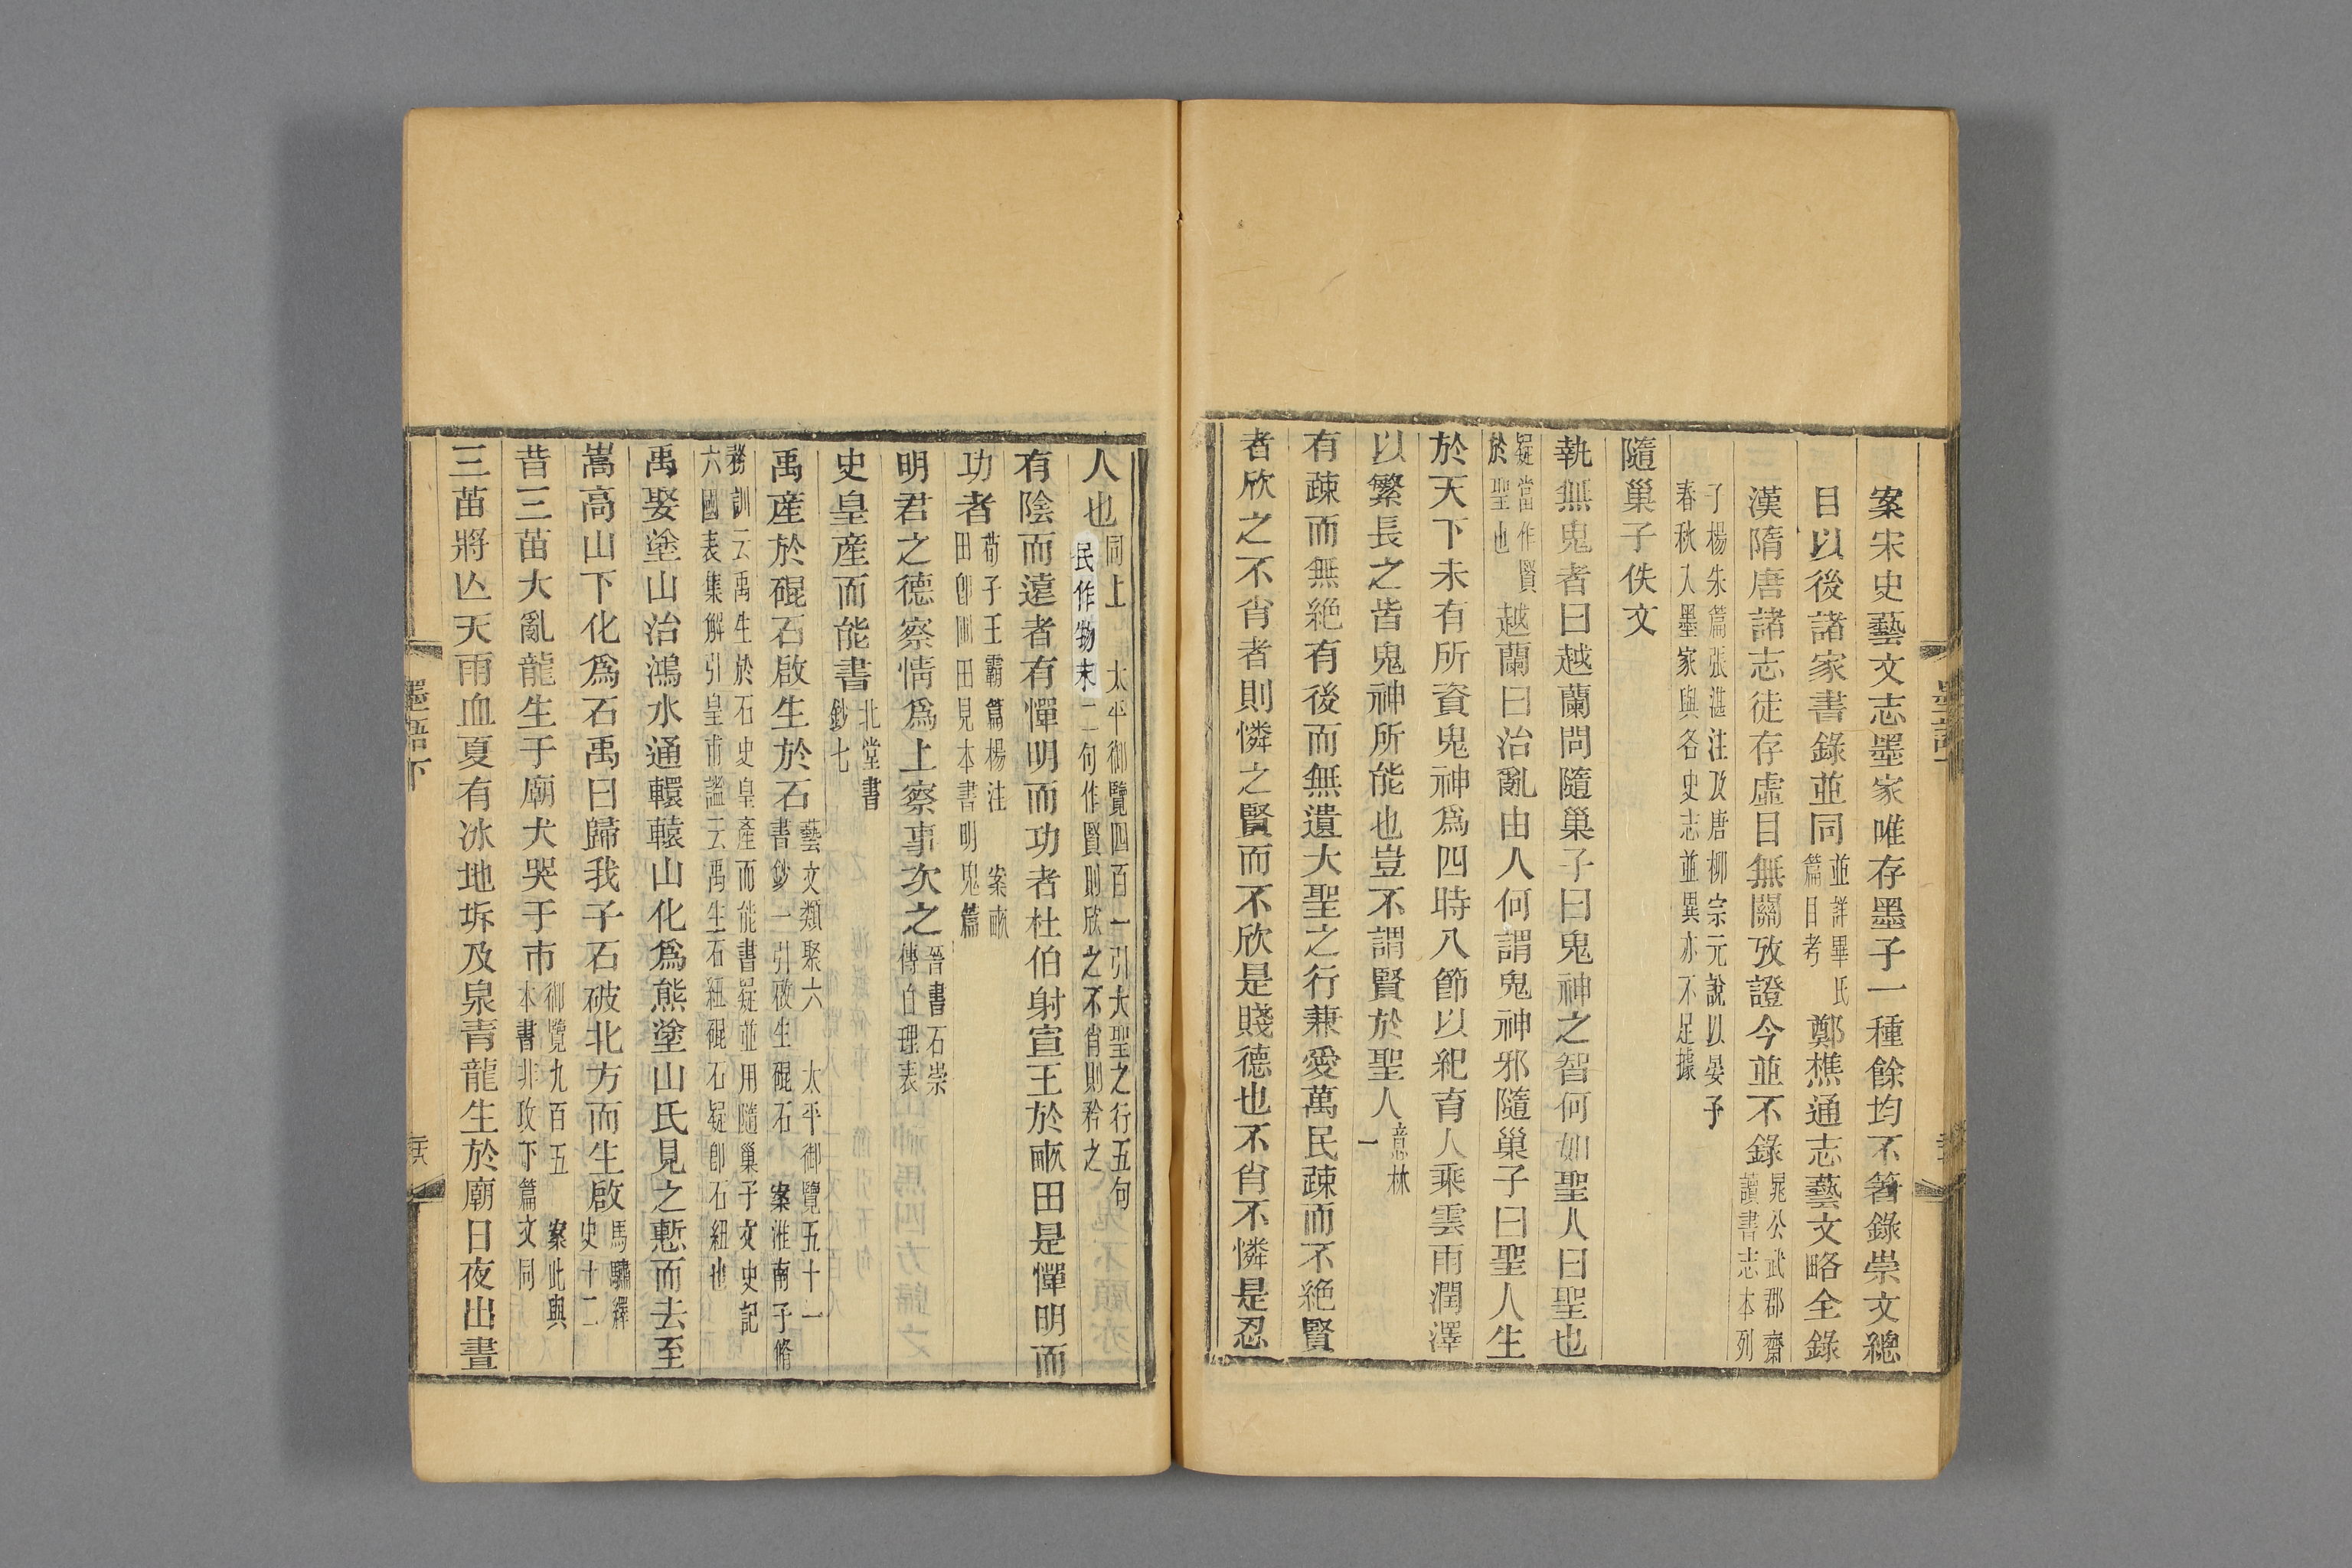 案宋史藝文志墨家唯存墨子一種餘均不箸錄崇文總
目以後諸家書錄並同並詳畢氏篇目考鄭樵通志藝文略全錄
漢隋唐諸志徒存虛目無關攷證今並不錄晁公武郡齋讀書志本列
子楊朱篇張湛注及唐柳宗元說以晏子春秋入墨家與各史志並異亦不足據
隨巢子佚文
執無鬼者曰越蘭問隨巢子曰鬼神之智何如聖人曰聖也
疑當作賢於聖也越蘭曰治亂由人何謂鬼神邪隨巢子曰聖人生
於天下未有所資鬼神爲四時八節以紀育人乘雲雨潤澤
以繁長之皆鬼神所能也豈不謂賢於聖人意林一
有疎而無絕有後而無遺大聖之行兼愛萬民疎而不絕賢
者欣之不肖者則憐之賢而不欣是賤德也不肖不憐是忍
人也同上 太平御覽四百一引大聖之行五句民作物末二句作賢則欣之不肖則矜之
有陰而遠者有憚明而功者杜伯射宣王於畝田是憚明而
功者荀子王霸篇楊注 案畝田卽圃田見本書明鬼篇
明君之德察情爲上察事次之晉書石崇傳自理表
史皇產而能書北堂書鈔七
禹產於䃂石啟生於石藝文類聚六 太平御覽五十一書鈔一引啟生䃂石 案淮南子脩
務訓云禹生於石史皇產而能書疑並用隨巢子文史記六國表集解引皇甫謐云禹生石紐䃂石疑卽石紐也
禹娶塗山治鴻水通轘轅山化爲熊塗山氏見之慙而去至
嵩高山下化爲石禹曰歸我子石破北方而生啟馬驌繹史十二
昔三苗大亂龍生于廟犬哭于市御覽九百五 案此與本書非攻下篇文同
三苗將亾天雨血夏有冰地坼及泉青龍生於廟日夜出晝
墨語下